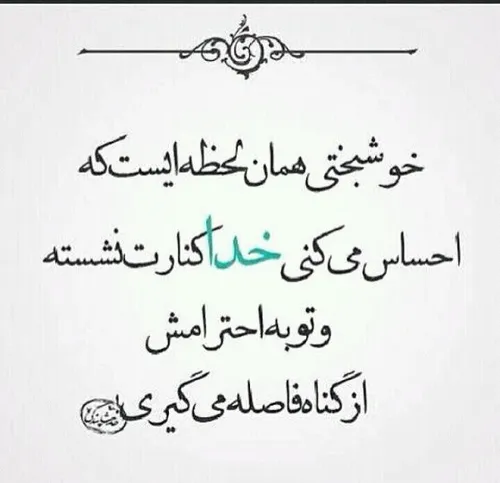 خوشبختی همان لحظه ایست که
احساس می کنی خدا کنارت نشسته
و تو به احترامش
از گناه فاصله می گیری